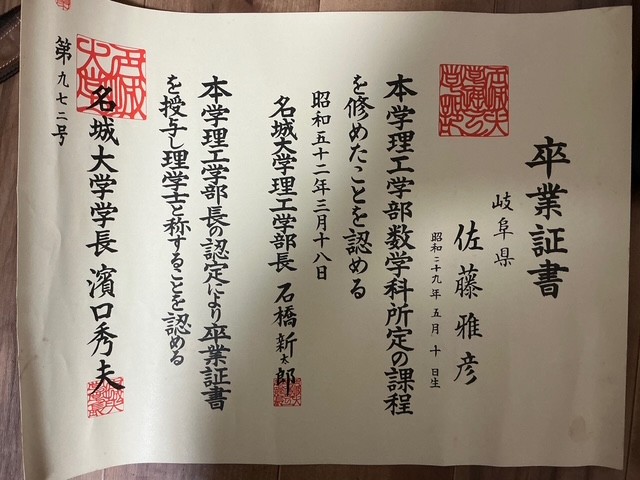 卒業証書
岐阜県
佐藤雅彦
昭和二十九年五月十日生
本学理工学部数学科所定の課程
を修めたことを認める
昭和五十二年三月十八日
名城大学理工学部長 石橋新太郎
本学理工学部長の認定により卒業証書
を授与し理学士と称することを認める
名城大学学長 濱口秀夫
第九七二号